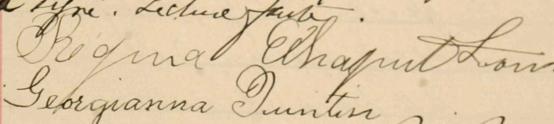 signé. Lecture faite.
Régina Chaput Lou
Georgianna Quintin